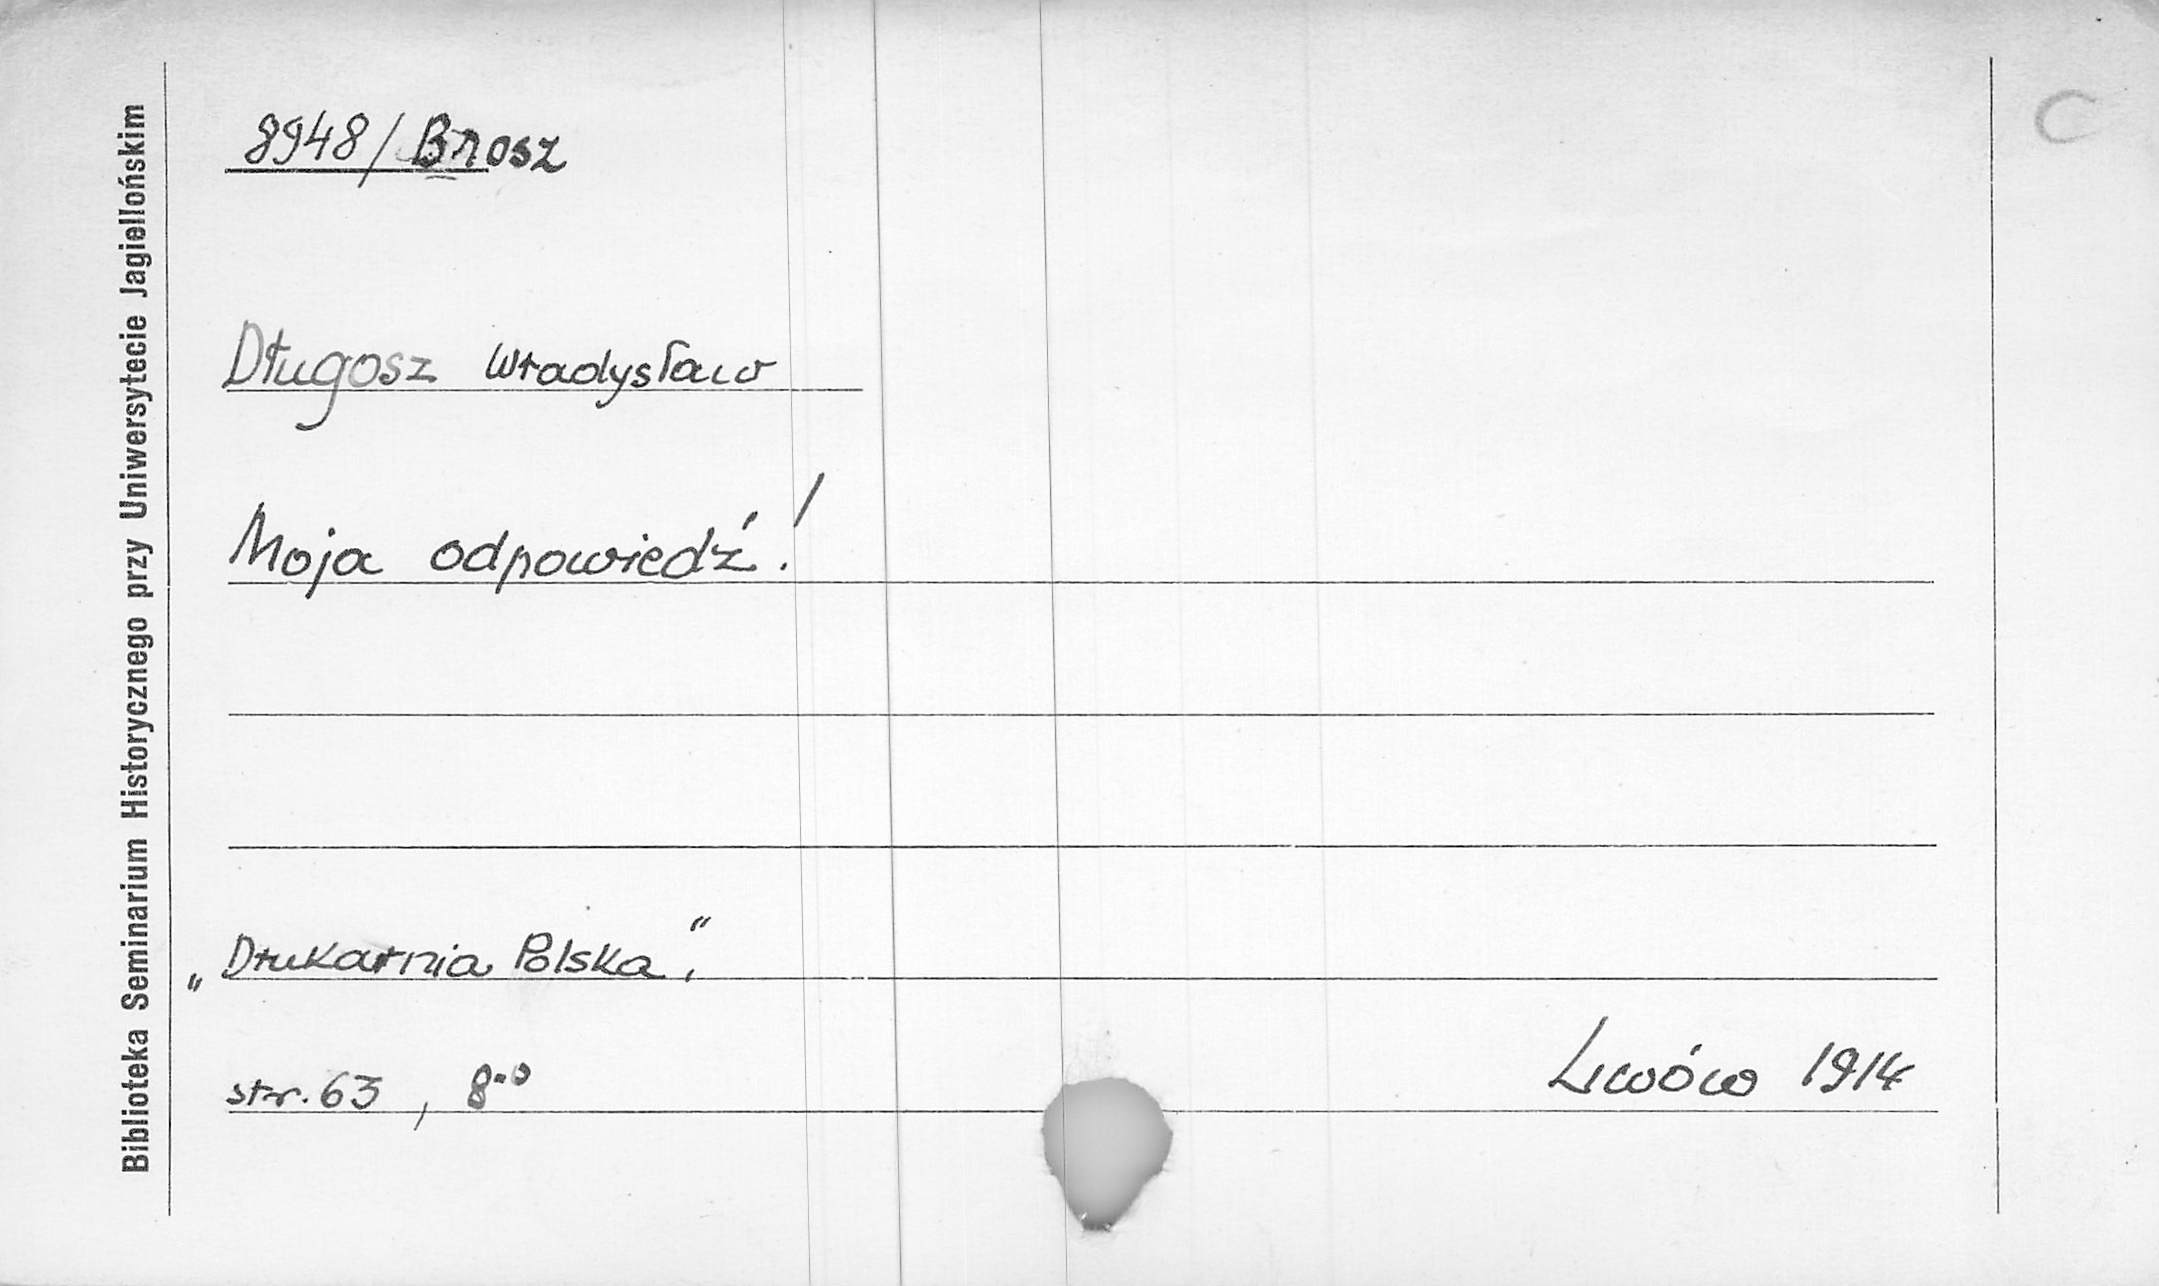 8948/Brosz
Długosz Władysław
Moja odpowiedź!
„Drukarnia Polska",
str. 63, 8-o
Lwów 1914
Biblioteka Seminarium Historycznego przy Uniwersytecie Jagiellońskim
C